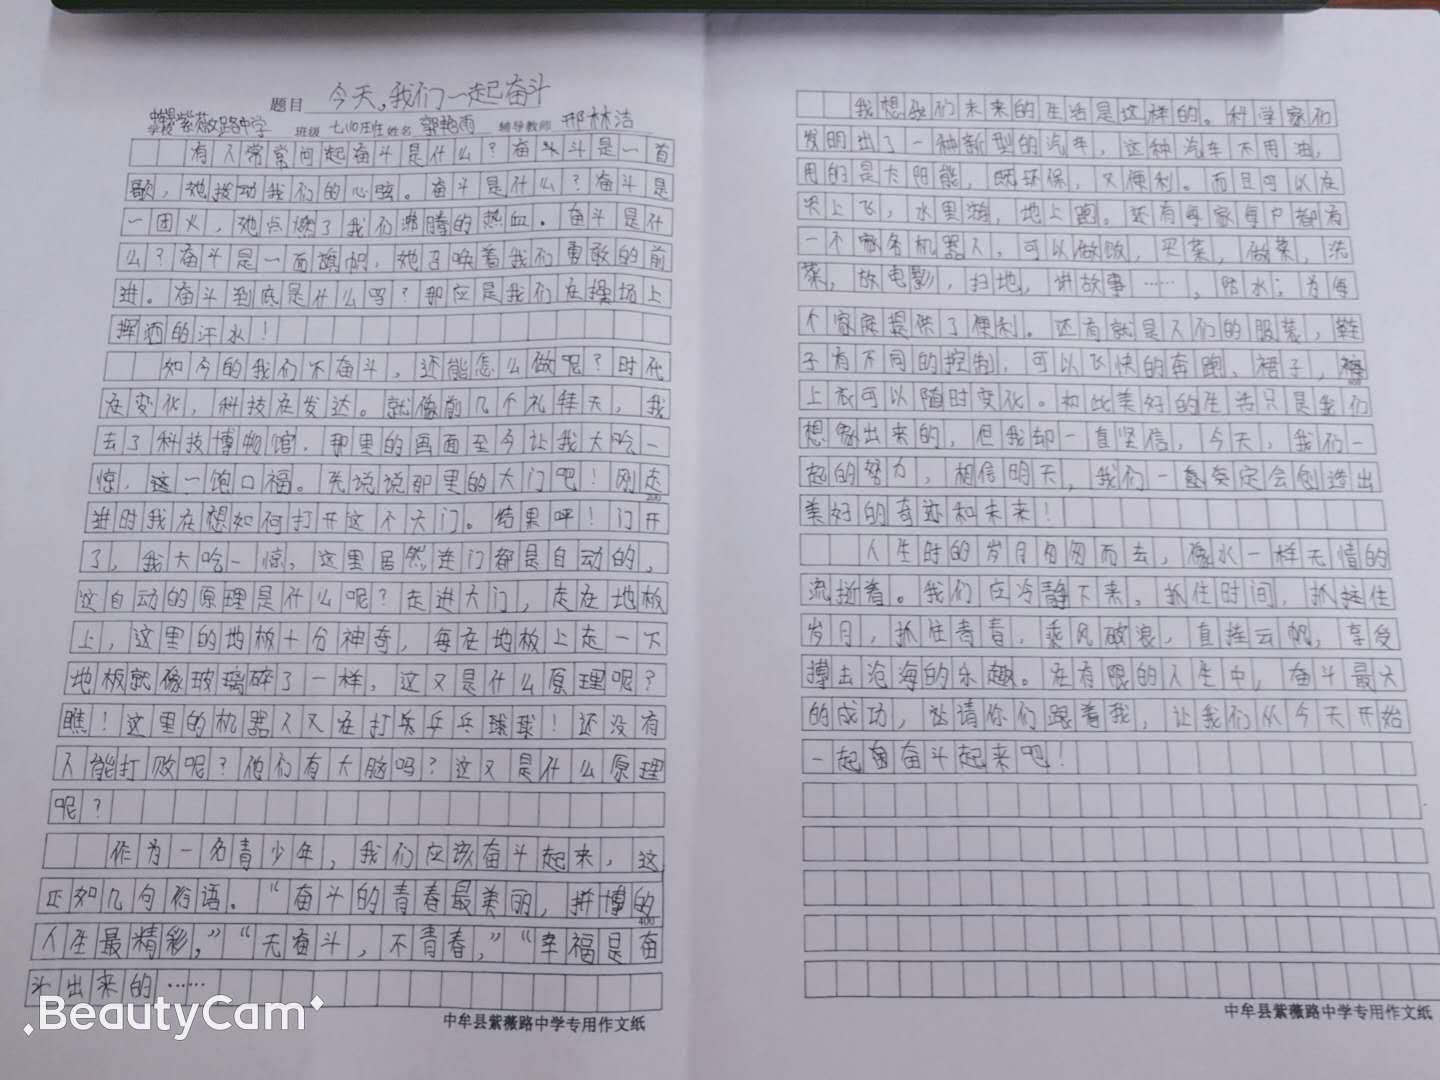 题目 今天,我们一起奋斗
学校 紫薇路中学 班级 七(10)班 姓名 郭艳雨 辅导教师 邢林洁
有人常常问起奋斗是什么?奋斗是一首
歌，她拨动我们的心弦。奋斗是什么?奋斗是
一团火，她点燃了我们沸腾的热血。奋斗是什
么?奋斗是一面旗帜，她召唤着我们勇敢的前
进。奋斗到底是什么吗?那应是我们在操场上
挥洒的汗水!
如今的我们不奋斗，还能怎么做呢?时代
在变化，科技在发达。就像前几个礼拜天，我
去了科技博物馆，那里的画面至今让我大吃一
惊，这一饱口福。先说说那里的大门吧!刚走
200
进时我在想如何打开这个大门。结果呯!门开
了，我大吃一惊，这里居然连门都是自动的，
这自动的原理是什么呢?走进大门，走在地板
上，这里的地板十分神奇，每在地板上走一下
地板就像玻璃碎了一样，这又是什么原理呢?
瞧!这里的机器人又在打乒乓乒球球!还没有
人能打败呢?他们有大脑吗?这又是什么原理
呢?
作为一名青少年，我们应该奋斗起来，这
正如几句俗语。“奋斗的青春最美丽，拼博的
400
人生最精彩，”“无奋斗，不青春，”“幸福是奋
斗出来的……
中牟县紫薇路中学专用作文纸
我想我们未来的生活是这样的。科学家们
发明出了一种新型的汽车，这种汽车不用油，
用的是太阳能，既环保，又便利。而且可以在
天上飞，水里游，地上跑。还有每家每户都有
一个家务机器人，可以做饭，买菜，做菜，洗
菜，放电影，扫地，讲故事……，防水；为每
个家庭提供了便利。还有就是人们的服装，鞋
子有不同的控制，可以飞快的奔跑，裙子，裤
600
上衣可以随时变化。如此美好的生活只是我们
想象出来的，但我却一直坚信，今天，我们一
起的努力，相信明天，我们一定会创造出
美好的奇迹和未来!
人生时的岁月匆匆而去，像水一样无情的
流逝着。我们应冷静下来，抓住时间，抓住
岁月，抓住青春，乘风破浪，直挂云帆，享受
搏击沧海的乐趣。在有限的人生中，奋斗最大
的成功，敬请你们跟着我，让我们从今天开始
一起奋斗起来吧!
中牟县紫薇路中学专用作文纸
BeautyCam